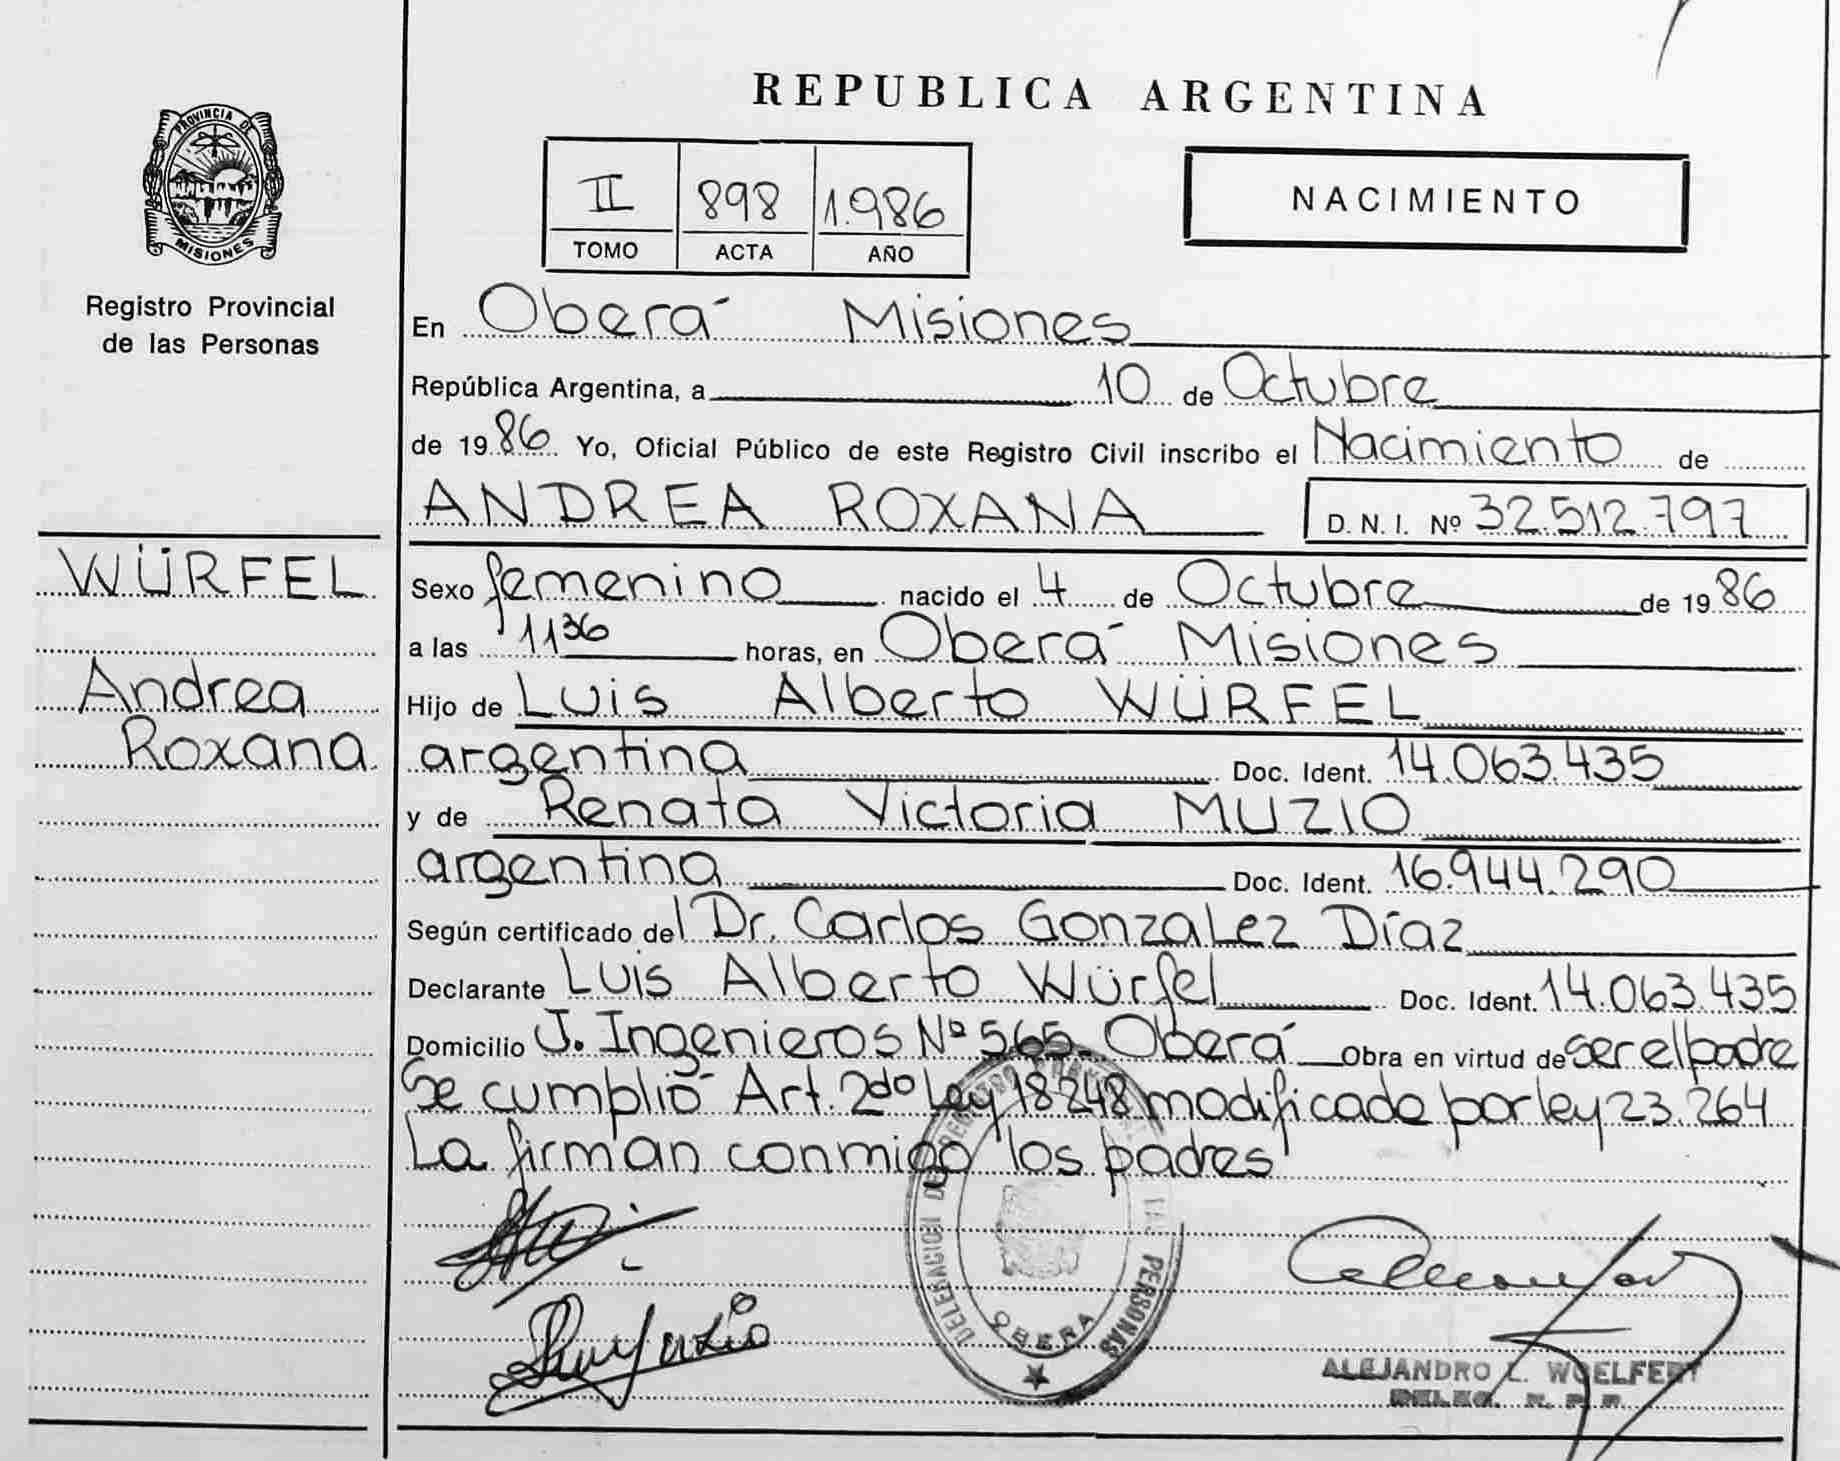 PROVINCIA DE
MISIONES
Registro Provincial
de las Personas
WÜRFEL
Andrea
Roxana
REPUBLICA ARGENTINA
II 898 1.986
TOMO ACTA AÑO
NACIMIENTO
En Oberá Misiones
República Argentina, a 10 de Octubre
de 1986 Yo, Oficial Público de este Registro Civil inscribo el Nacimiento de
ANDREA ROXANA D.N.I. Nº 32.512.797
Sexo femenino nacido el 4 de Octubre de 1986
a las 1136 horas, en Oberá Misiones
Hijo de Luis Alberto WÜRFEL
argentina Doc. Ident. 14.063.435
y de Renata Victoria MUZIO
argentina Doc. Ident. 16.944.290
Según certificado del Dr. Carlos GonzaLez Díaz
Declarante Luis Alberto Würfel Doc. Ident. 14.063.435
Domicilio J. Ingenieros Nº 565. Oberá Obra en virtud de ser el padre
Se cumplió Art. 2do Ley 18248 modificada por ley 23.264
La firman conmigo los padres
DELEGACION DE REGISTRO PERSONAS
OBERA
ALEJANDRO L. WOELFERT